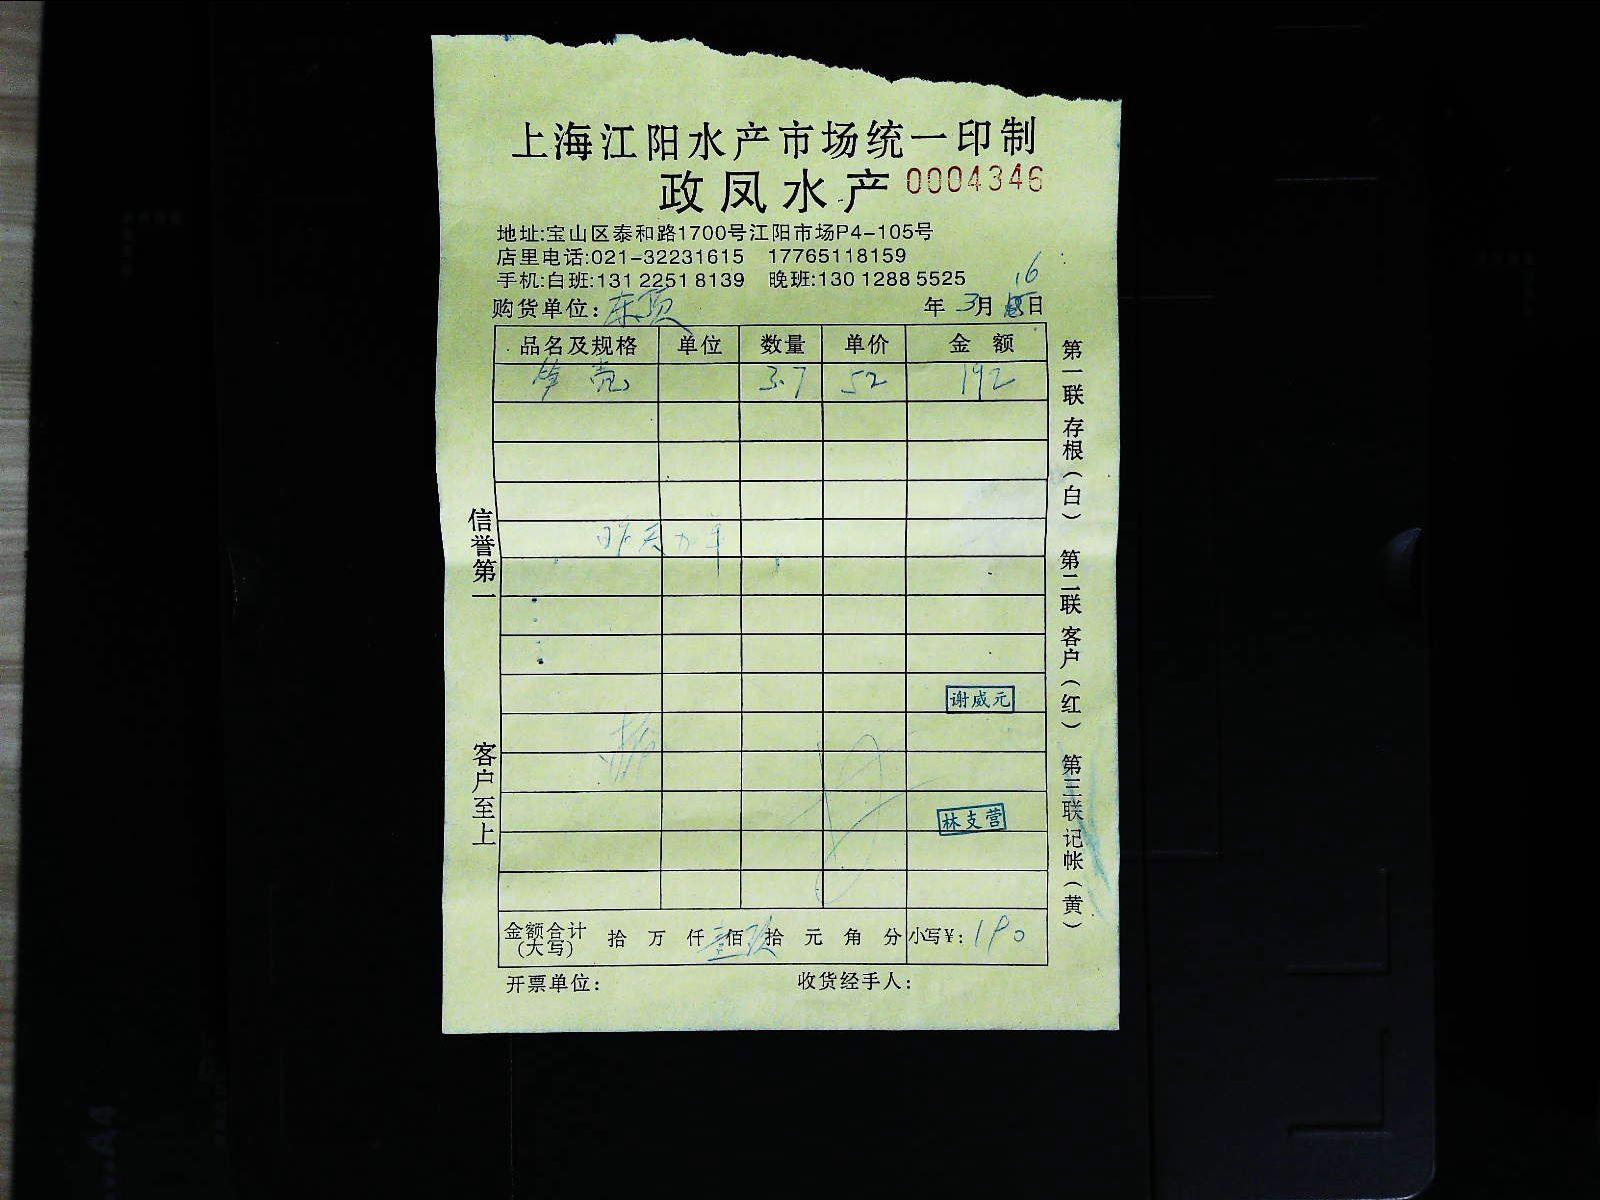 上海江阳水产市场统一印制
政凤水产 0004346
地址:宝山区泰和路1700号江阳市场P4-105号
店里电话:021-32231615 17765118159
手机:白班:131 2251 8139 晚班:130 1288 5525
16
购货单位: 年 3月 日
品名及规格 单位 数量 单价 金 额
3.7 52 192
昨天加单
谢威元
林支营
金额合计(大写) 拾 万 仟 壹佰 玖拾 元 角 分 小写¥: 190
开票单位: 收货经手人:
信誉第一
客户至上
第一联 存根(白) 第二联 客户(红) 第三联 记帐(黄)